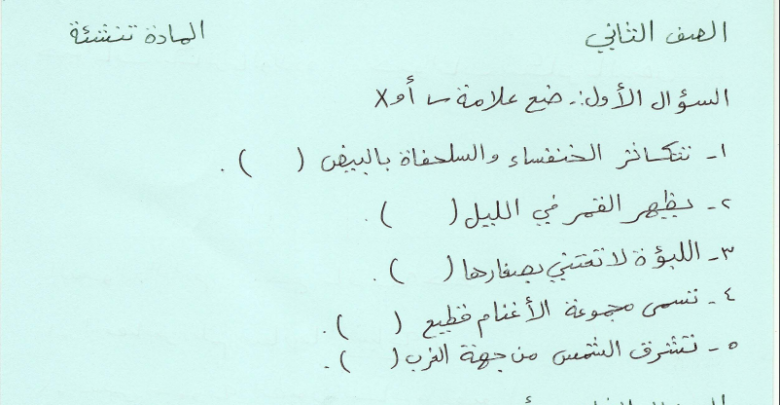 الصف الثاني المادة تنشئة
السؤال الأول:- ضع علامة ✓ أو X
١- تتكاثر الخنفساء والسلحفاة بالبيض ( ).
٢- يظهر القمر في الليل ( ).
٣- اللبؤة لا تعتني بصغارها ( ).
٤- تسمى مجموعة الأغنام قطيع ( ).
٥- تشرق الشمس من جهة الغرب ( ).